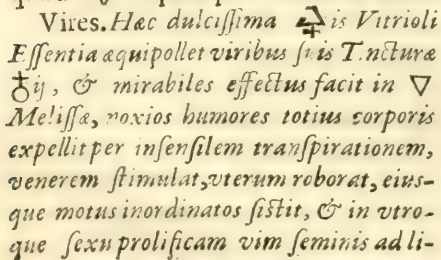 Vires. Hæc dulciſſima 🜍is Vitrioli
Eſſentia æquipollet viribus ſuis T.ncturæ
♁ij, & mirabiles effectus facit in ▽
Meliſſæ, noxios humores totius corporis
expellit per inſenſilem tranſpirationem,
venerem ſtimulat, vterum roborat, eius-
que motus inordinatos ſiſtit, & in vtro-
que ſexu prolificam vim ſeminis ad li-